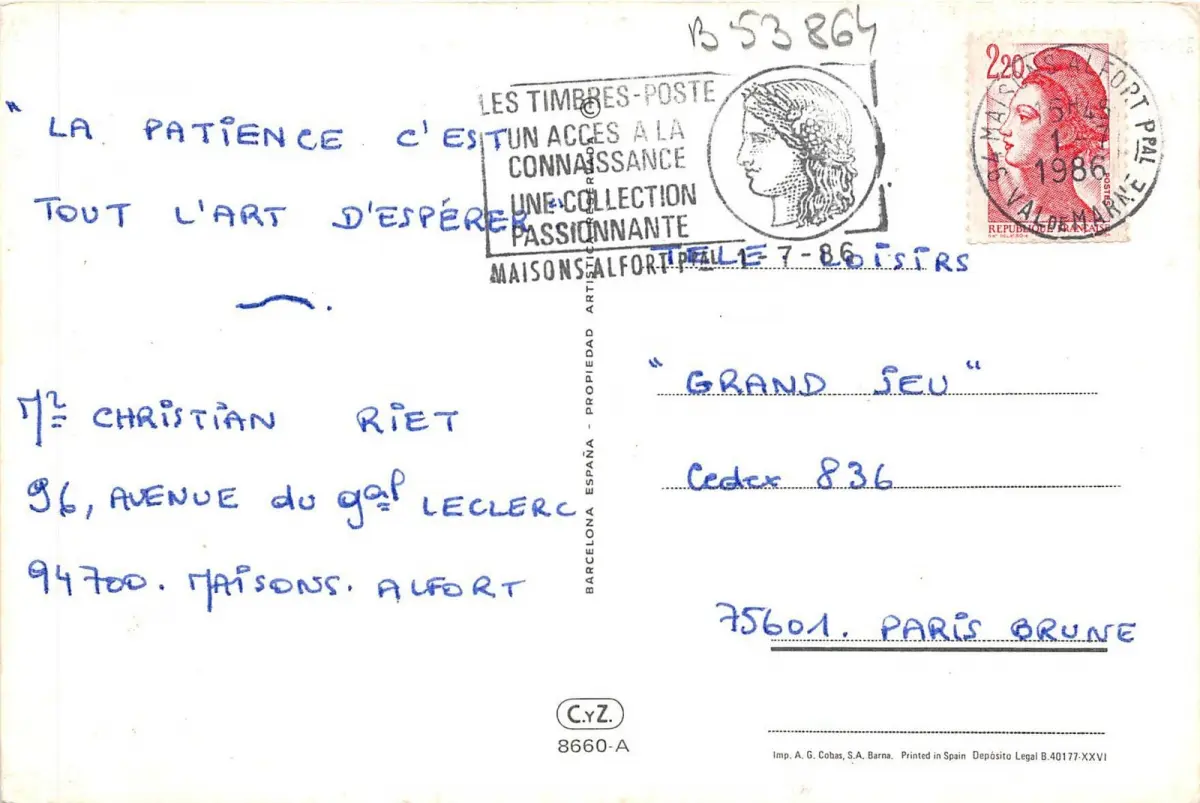 B 53864
LES TIMBRES-POSTE
UN ACCES A LA
CONNAISSANCE
UNE COLLECTION
PASSIONNANTE
MAISONS ALFORT PPAL 1-7-86
2,20
REPUBLIQUE FRANCAISE
POSTES
94 MAISONS ALFORT PPAL
15H45
1-7
1986
VAL DE MARNE
"LA PATIENCE C'EST
TOUT L'ART D'ESPÉRER"
Mr CHRISTIAN RIET
96, AVENUE du gal LECLERC
94700. MAISONS. ALFORT
BARCELONA ESPAÑA - PROPIEDAD
©
TELE LOISIRS
"GRAND JEU"
Cedex 836
75601. PARIS BRUNE
C.Y Z.
8660-A
Imp. A. G. Cobas, S.A. Barna. Printed in Spain Depósito Legal B.40177-XXVI